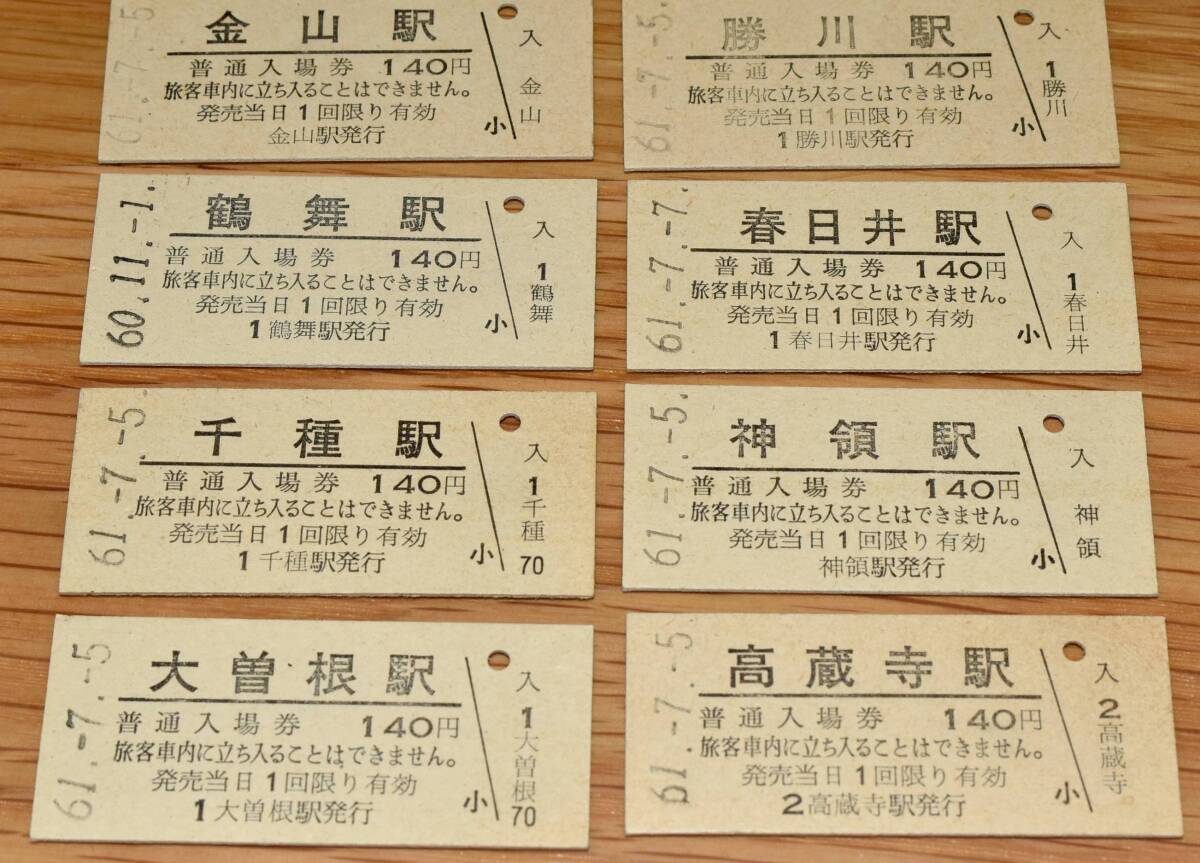 61.-7.-5
金山駅
普通入場券 140円
旅客車内に立ち入ることはできません。
発売当日1回限り有効
金山駅発行
小
入
金山
61.-7.-5.
勝川駅
普通入場券 140円
旅客車内に立ち入ることはできません。
発売当日1回限り有効
1勝川駅発行
小
入
1
勝川
60.11.-1.
鶴舞駅
普通入場券 140円
旅客車内に立ち入ることはできません。
発売当日1回限り有効
1鶴舞駅発行
小
入
1
鶴舞
61.-7.-7.
春日井駅
普通入場券 140円
旅客車内に立ち入ることはできません。
発売当日1回限り有効
1春日井駅発行
小
入
1
春日井
61.-7.-5.
千種駅
普通入場券 140円
旅客車内に立ち入ることはできません。
発売当日1回限り有効
1千種駅発行
小
入
1
千種
70
61.-7.-5.
神領駅
普通入場券 140円
旅客車内に立ち入ることはできません。
発売当日1回限り有効
神領駅発行
小
入
神領
61.-7.-5
大曽根駅
普通入場券 140円
旅客車内に立ち入ることはできません。
発売当日1回限り有効
1大曽根駅発行
小
入
1
大曽根
70
61.-7.-5
高蔵寺駅
普通入場券 140円
旅客車内に立ち入ることはできません。
発売当日1回限り有効
2高蔵寺駅発行
小
入
2
高蔵寺